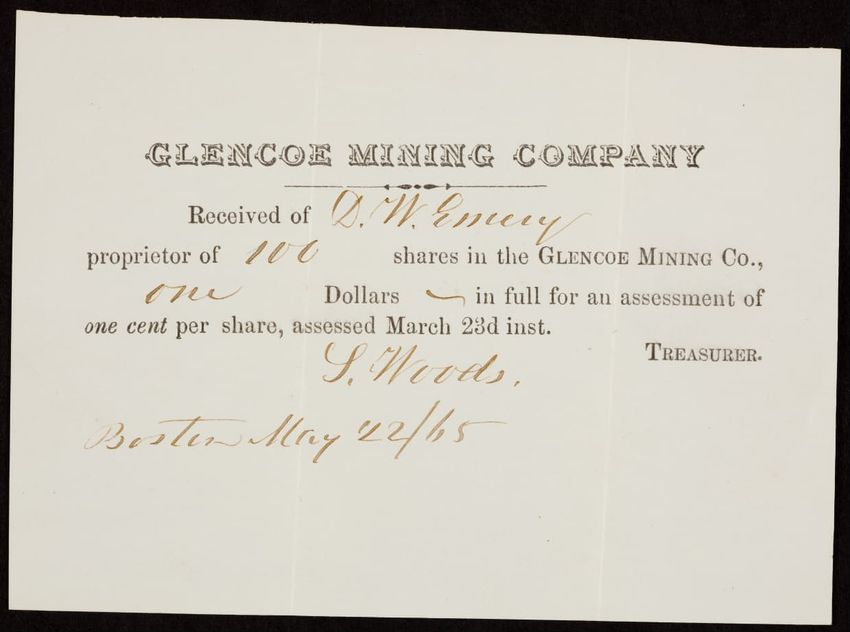 GLENCOE MINING COMPANY
Received of D. W. Emery
proprietor of 100 shares in the GLENCOE MINING CO.,
one Dollars in full for an assessment of
one cent per share, assessed March 23d inst.
TREASURER.
S. Woods.
Boston May 22/65